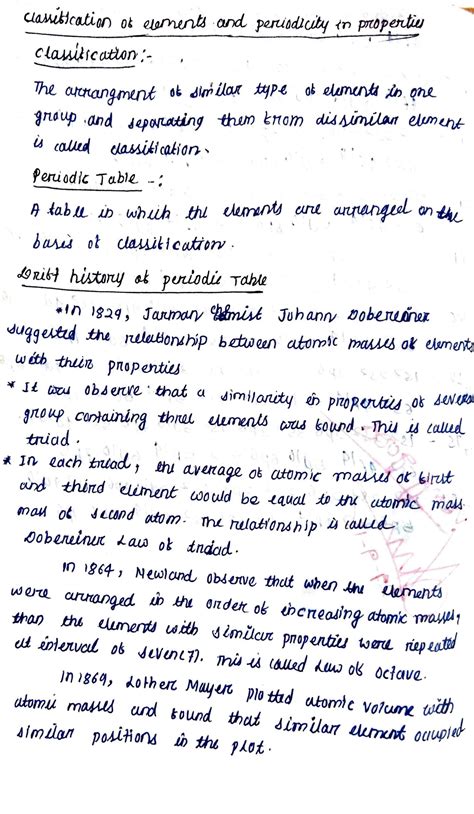 classification of elements and periodicity in properties
classification:-
The arrangment of similar type of elements in one
group and separating them from dissimilar element
is called classification.
Periodic Table -:
A table in which the elements are arranged on the
basis of classification.
Brief history of periodic Table
*In 1829, Jarman chemist Johann Dobereiner
suggested the relationship between atomic masses of elements
with their properties
* It was observe that a similarity in properties of several
group containing three elements was found. This is called
triad.
* In each triad, the average of atomic masses of first
and third element would be equal to the atomic mass
mass of second atom. The relationship is called
Dobereiner Law of triad.
In 1864, Newland observe that when the elements
were arranged in the order of increasing atomic masses,
than the elements with similar properties were repeated
at interval of seven(7). This is called Law of octave.
In 1869, Lother Mayer plotted atomic volume with
atomic masses and found that similar element ocupied
similar positions in the plot.